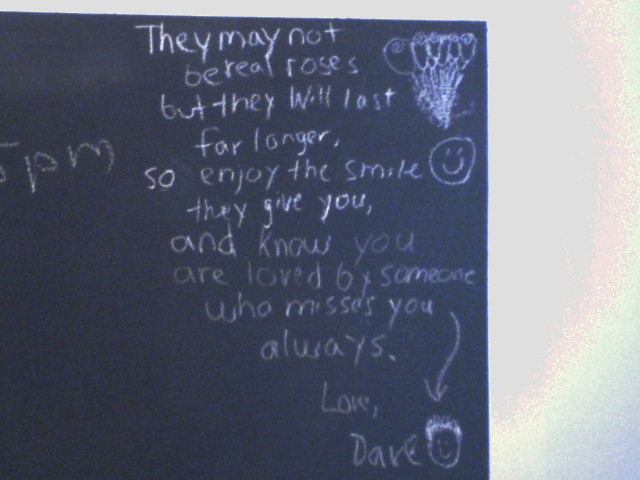 They may not
be real roses
but they will last
far longer,
so enjoy the smile
they give you,
and know you
are loved by someone
who misses you
always.
Love,
Dave
5pm